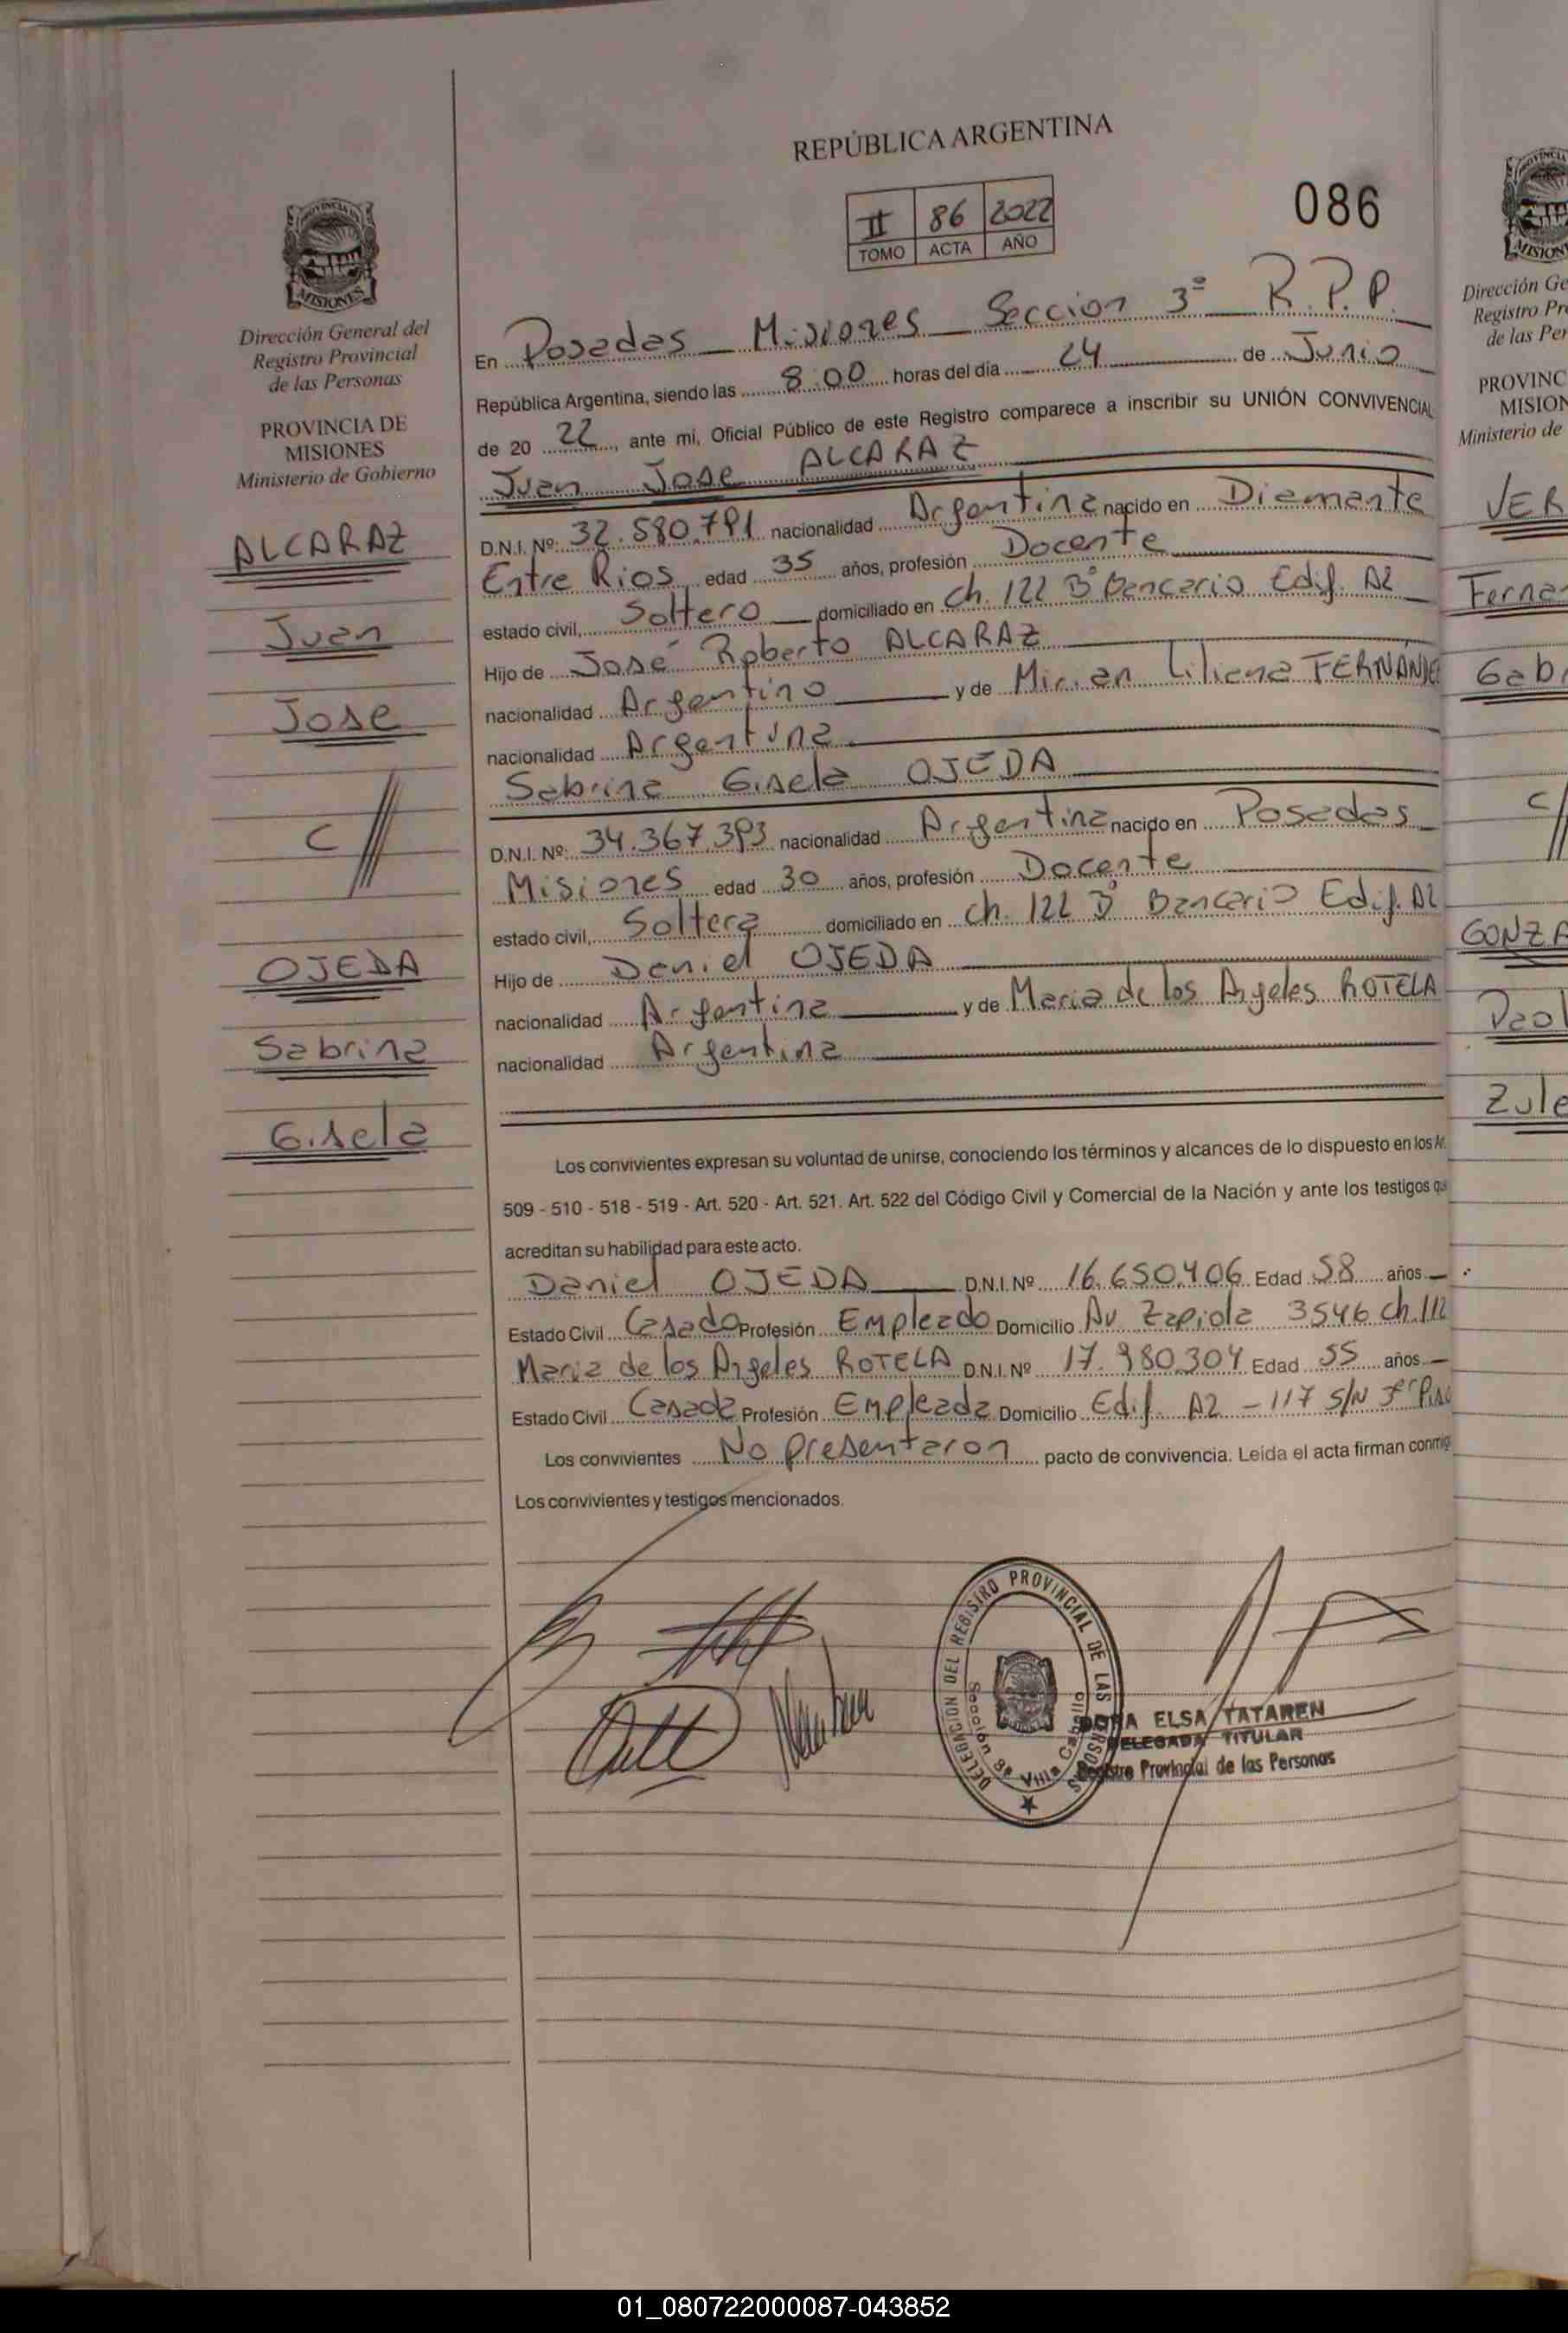 REPÚBLICA ARGENTINA
II 86 2022
TOMO ACTA AÑO
086
PROVINCIA DE
MISIONES
Dirección General del
Registro Provincial
de las Personas
PROVINCIA DE
MISIONES
Ministerio de Gobierno
ALCARAZ
Juan
Jose
C//
OJEDA
Sabrina
Gisela
En Posadas Misiones Seccion 3º R.P.P.
República Argentina, siendo las 8:00 horas del día 24 de Junio
de 20 22, ante mi, Oficial Público de este Registro comparece a inscribir su UNIÓN CONVIVENCIAL
Juan Jose ALCARAZ
D.N.I. Nº: 32.580.791 nacionalidad Argentina nacido en Diamante
Entre Rios edad 35 años, profesión Docente
estado civil, Soltero domiciliado en Ch. 122 Bº Bancario Edif. A2
Hijo de José Roberto ALCARAZ
nacionalidad Argentino y de Mirian Liliana FERNÁNDE
nacionalidad Argentina
Sabrina Gisela OJEDA
D.N.I. Nº: 34.367.393 nacionalidad Argentina nacido en Posadas
Misiones edad 30 años, profesión Docente
estado civil, Soltera domiciliado en Ch. 122 Bº Bancario Edif. A2
Hijo de Daniel OJEDA
nacionalidad Argentina y de Maria de los Angeles ROTELA
nacionalidad Argentina
Los convivientes expresan su voluntad de unirse, conociendo los términos y alcances de lo dispuesto en los Ar.
509 - 510 - 518 - 519 - Art. 520 - Art. 521. Art. 522 del Código Civil y Comercial de la Nación y ante los testigos qu
acreditan su habilidad para este acto.
Daniel OJEDA D.N.I. Nº 16.650.406 Edad 58 años
Estado Civil Casado Profesión Empleado Domicilio Av. Zapiola 3546 Ch. 112
Maria de los Angeles ROTELA D.N.I. Nº 17.980.304 Edad 55 años
Estado Civil Casada Profesión Empleada Domicilio Edif. A2 - 117 S/N 3er Piso
Los convivientes No presentaron pacto de convivencia. Leída el acta firman conmig
Los convivientes y testigos mencionados.
DELEGACION DEL REGISTRO PROVINCIAL DE LAS PERSONAS
Sección 8ª Villa Cabello
DORA ELSA TATAREN
DELEGADA TITULAR
Registro Provincial de las Personas
Dirección Ge
Registro Pro
de las Per
PROVINC
MISION
Ministerio de
VER
Ferna
Gabr
C//
GONZA
Paol
Zule
01_080722000087-043852